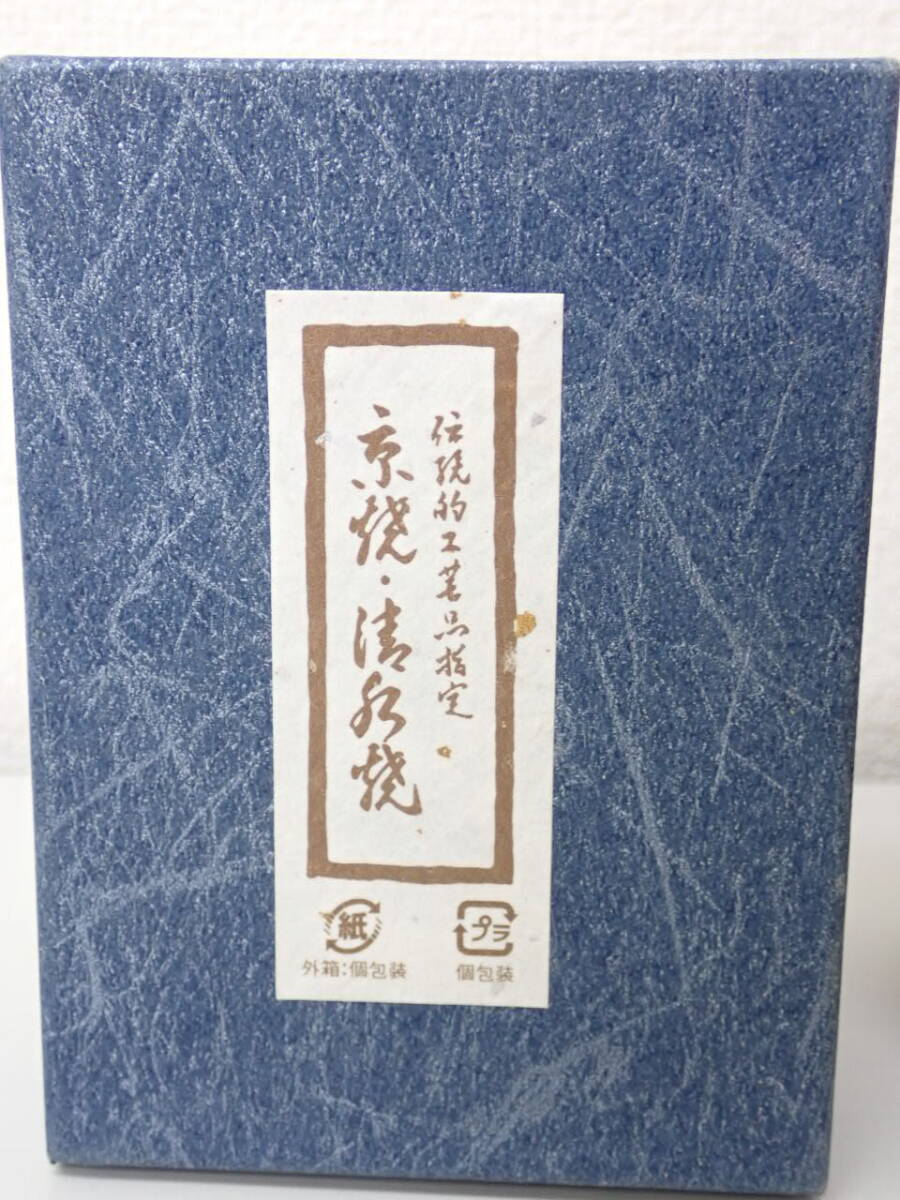 伝統的工芸品指定
京焼・清水焼
紙
外箱:個包装
プラ
個包装